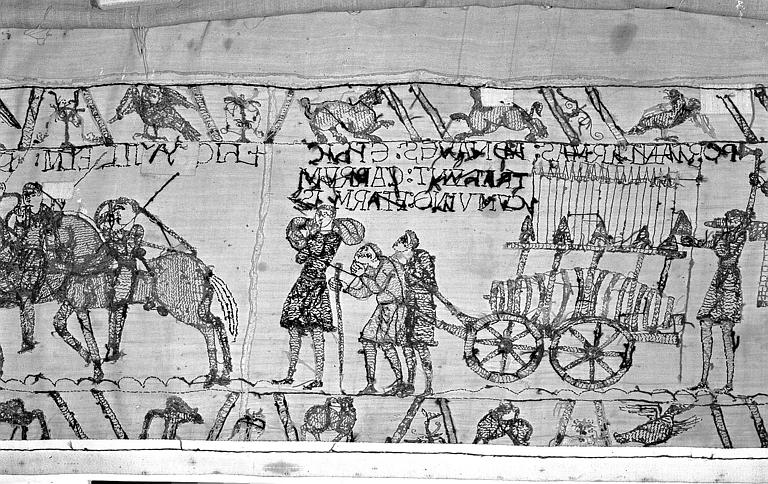 PORTANT ARMAS: AD NAVES: ET HIC
TRAHUNT: CARRUM
CUM VINO: ET ARMIS
HIC WILLELM: